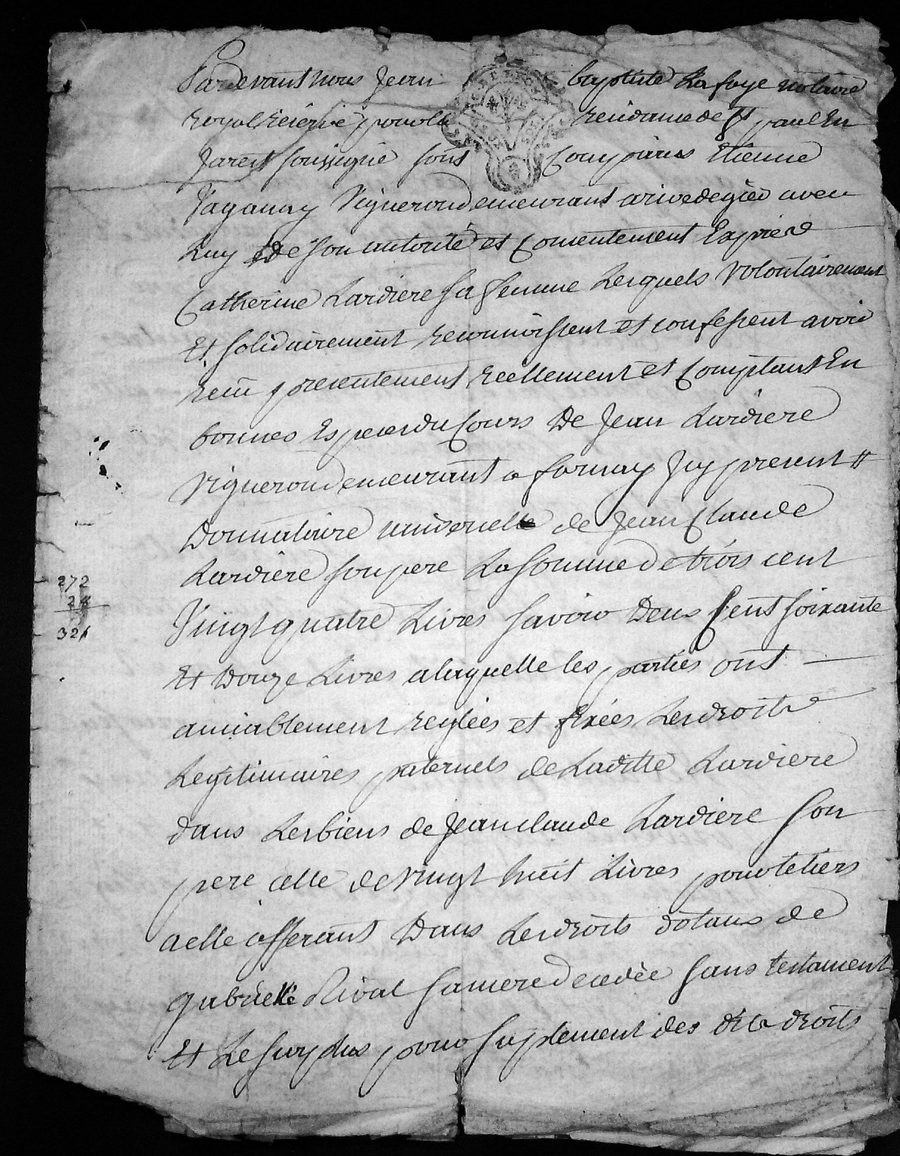 Pardevant nous Jean baptiste Lafaye notaire
Royal Réservé pour la Residance de St paul En
Jarest soussigné sont Comparus Etienne
Paganay Vigneron demeurant a rivedegier avec
Luy et de son autorité et Consentement Expres
Catherine Lardiere sa femme Lesquels Volontairement
Et solidairement reconnoissent et confessent avoir
reçu presentement reellement et Comptant En
bonnes Especes du Cours De Jean Lardiere
Vigneron demeurant a farnay Icy present
Donnataire universelle de Jean Claude
272
Lardiere son pere La somme de trois cent
321
Vingt quatre Livres savoir Deux Cent soixante
Et Douze Livres a laquelle les parties ont
amiablement reglées et fixées Les droits
Legitimaires paternels de Laditte Lardiere
dans Les biens de Jean claude Lardiere son
pere celle de vingt huit Livres pour le tiers
a elle afferant Dans Les droits dotaux de
gabrielle Rival sa mere decedée sans testament
Et Le surplus pour suplement des dits droits